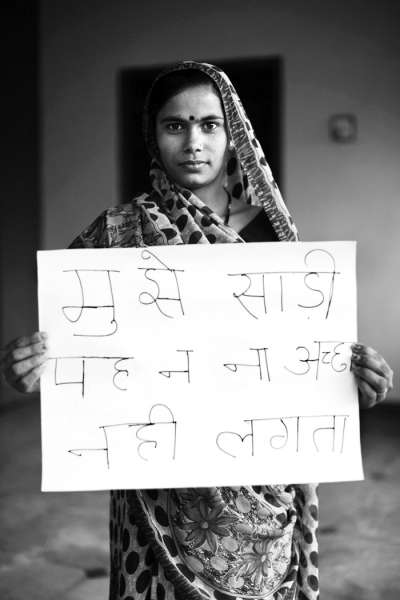 मुझे साड़ी
पहनना अच्छा
नही लगता